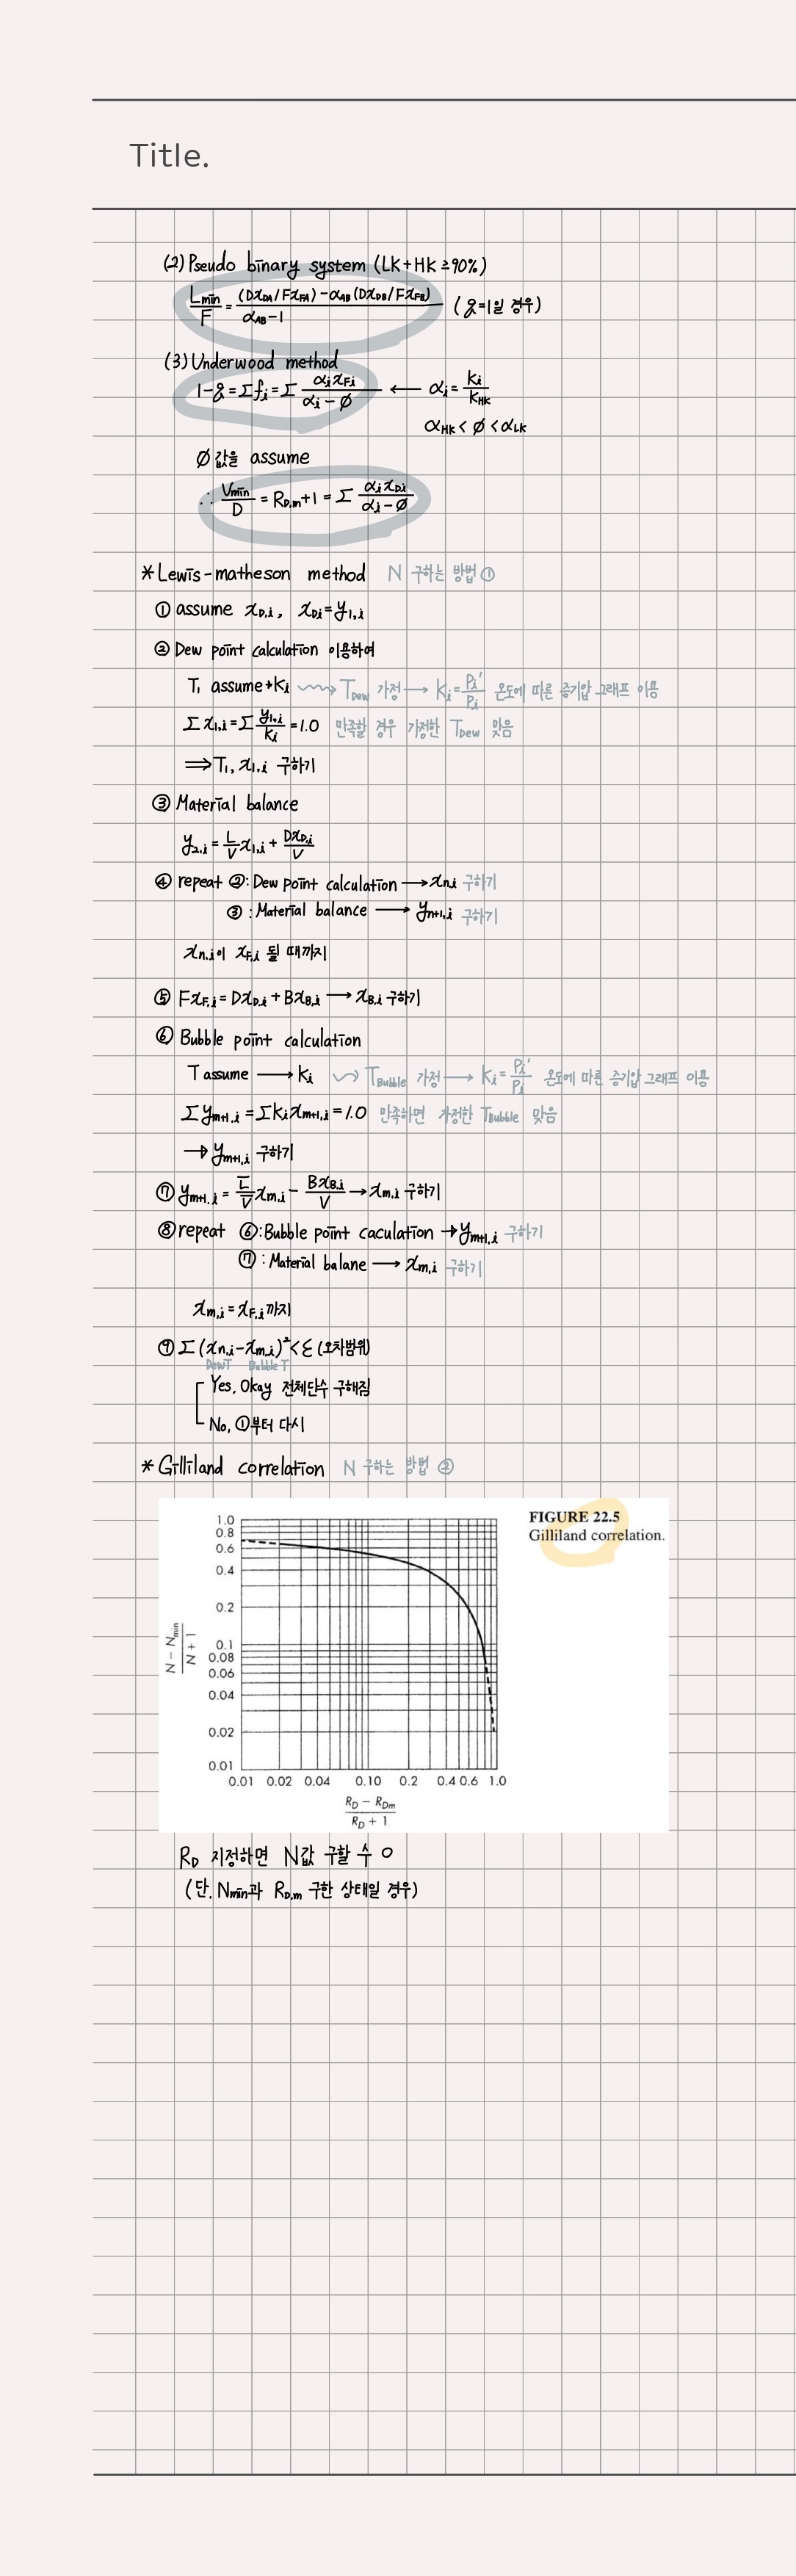 Title.
(2) Pseudo binary system (LK+HK ≥ 90%)
Lmin/F = ((DxDA/FxFA) - αAB(DxDB/FxFB))/(αAB-1) (q=1일 경우)
(3) Underwood method
1-q = Σfi = Σ αixFi/(αi-ø) ← αi = Ki/KHK
αHK < ø < αLK
ø값을 assume
∴ Vmin/D = RD,m+1 = Σ αixDi/(αi-ø)
* Lewis-matheson method N 구하는 방법 ①
① assume xD,i, xDi=y1,i
② Dew point calculation 이용하여
T1 assume → Ki ⇝ TDew 가정 → Ki = Pi'/Pi 온도에 따른 증기압 그래프 이용
Σx1,i = Σ y1,i/Ki = 1.0 만족할 경우 가정한 TDew 맞음
⇒ T1, x1,i 구하기
③ Material balance
y2,i = L/V x1,i + DxD,i/V
④ repeat ②: Dew point calculation → xn,i 구하기
③ : Material balance → yn+1,i 구하기
xn,i이 xF,i 될 때까지
⑤ FxF,i = DxD,i + BxB,i → xB,i 구하기
⑥ Bubble point calculation
T assume → Ki ⇝ TBubble 가정 → Ki = Pi'/Pi 온도에 따른 증기압 그래프 이용
Σym+1,i = ΣKixm+1,i = 1.0 만족하면 가정한 TBubble 맞음
→ ym+1,i 구하기
⑦ ym+1,i = L̄/V̄ xm,i - BxB,i/V̄ → xm,i 구하기
⑧ repeat ⑥: Bubble point caculation → ym+1,i 구하기
⑦ : Material balane → xm,i 구하기
xm,i = xF,i 까지
⑨ Σ(xn,i - xm,i)² < ε (오차범위)
DewT BubbleT
Yes, Okay 전체단수 구해짐
No, ①부터 다시
* Gilliland correlation N 구하는 방법 ②
FIGURE 22.5
Gilliland correlation.
1.0
0.8
0.6
0.4
0.2
0.1
0.08
0.06
0.04
0.02
0.01
N - Nmin
N + 1
0.01 0.02 0.04 0.10 0.2 0.4 0.6 1.0
RD - RDm
RD + 1
RD 지정하면 N값 구할 수 O
(단, Nmin과 RD,m 구한 상태일 경우)